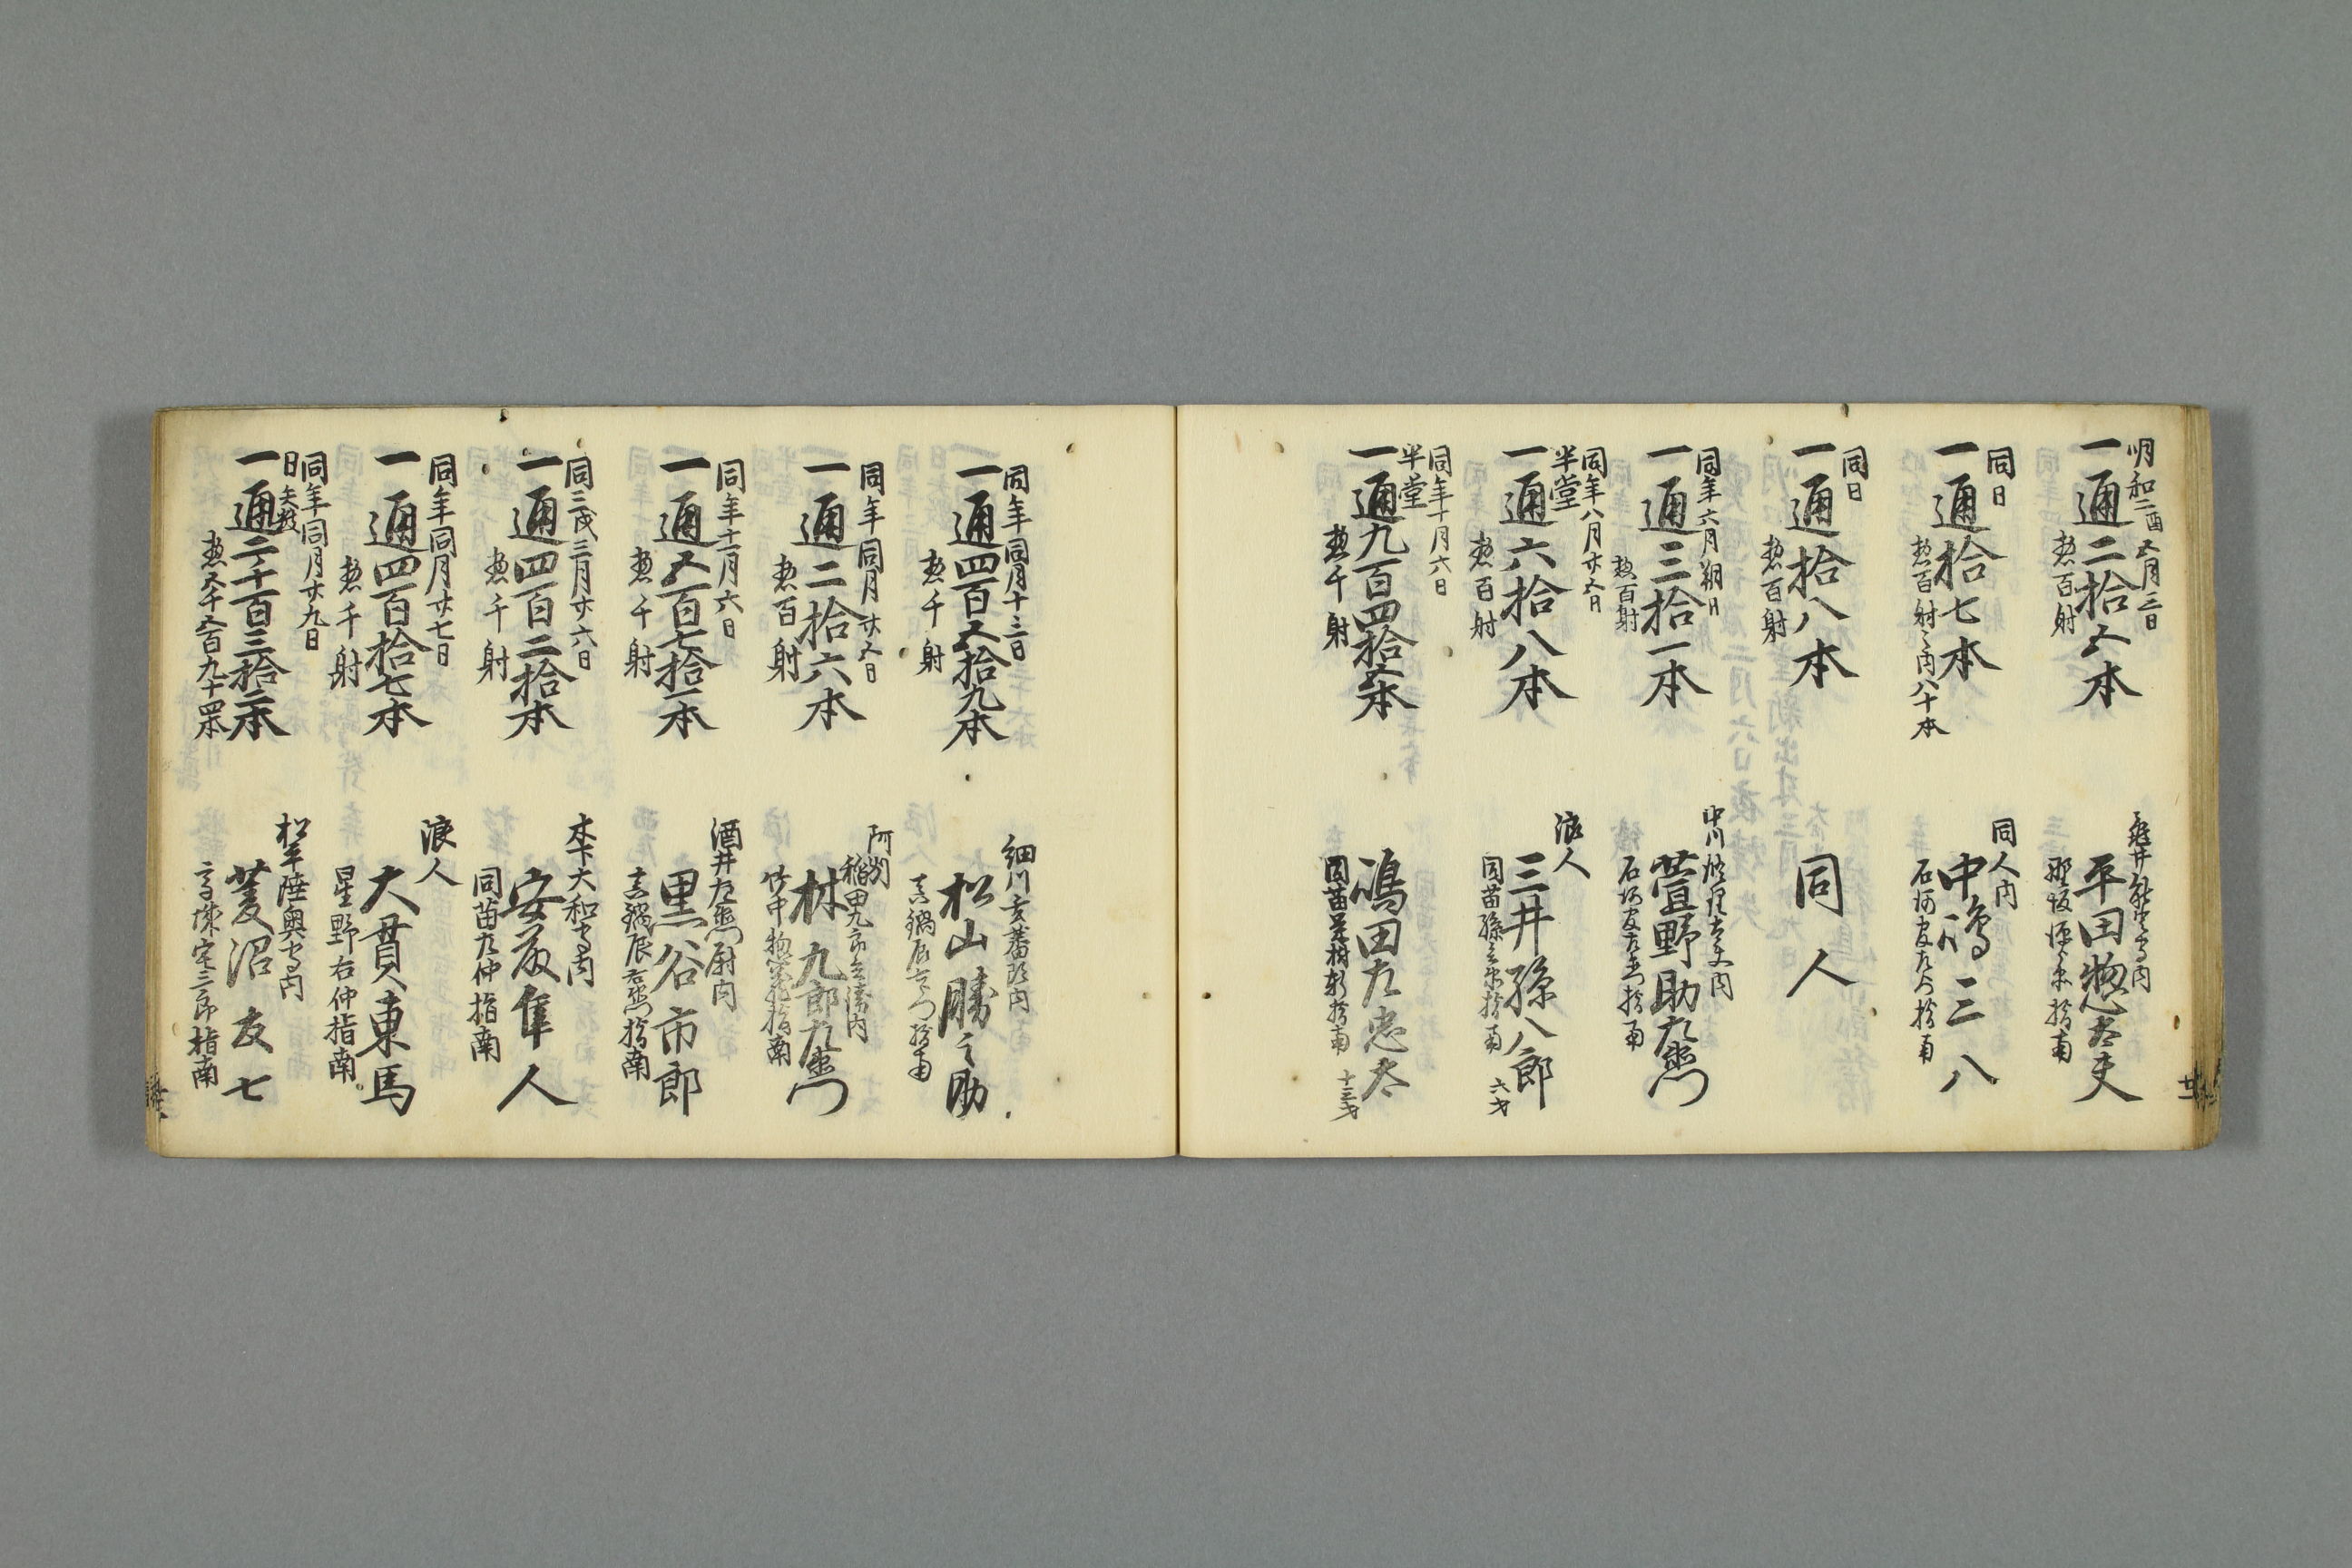 明和二酉五月三日
一通二拾五本
惣百射
亀井能登守内
平田惣太夫
指南
同日
一通拾七本
惣百射之内八十本
同人内
中嶋三八
指南
同日
一通拾八本
惣百射
同人
同年六月朔日
一通三拾一本
惣百射
中川修理太夫内
萱野助左衛門
指南
同年八月廿五日
半堂
一通六拾八本
惣百射
浪人
三井孫八郎
同苗孫三郎指南
六才
同年十月六日
半堂
一通九百四拾五本
惣千射
嶋田左忠太
指南
十三才
同年同月十三日
一通四百五拾九本
惣千射
細川内
松山勝之助
指南
同年同月廿五日
一通二拾六本
惣百射
阿州
稲田九郎兵衛内
林九郎左衛門
竹中指南
同年十一月六日
一通五百七拾一本
惣千射
酒井左衛門尉内
黒谷市郎
真鍋辰右衛門指南
同三戌三月廿六日
一通四百二拾本
惣千射
木下大和守内
安藤隼人
同苗左仲指南
同年同月廿七日
一通四百拾七本
惣千射
浪人
大貫東馬
星野右仲指南
同年同月廿九日
日矢数
一通二千百三拾二本
惣五千五百九十四本
松平陸奥守内
菱沼友七
指南